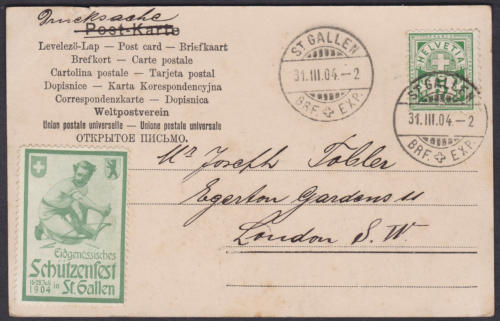 Drucksache
Post-Karte
Levelező-Lap — Post card — Briefkaart
Brefkort — Carte postale
Cartolina postale — Tarjeta postal
Dopisnice — Karta Korespondencyjna
Correspondenzkarte — Dopisnica
Weltpostverein
Union postale universelle — Unione postale universale
ОТКРЫТОЕ ПИСЬМО.
ST. GALLEN
31.III.04.–2
BRF. EXP.
HELVETIA
ST. GALLEN
31.III.04.–2
BRF. EXP.
Mr Joseph Tobler
Egerton Gardens 11
London S. W.
Eidgenössisches
Schützenfest
in St. Gallen
1904